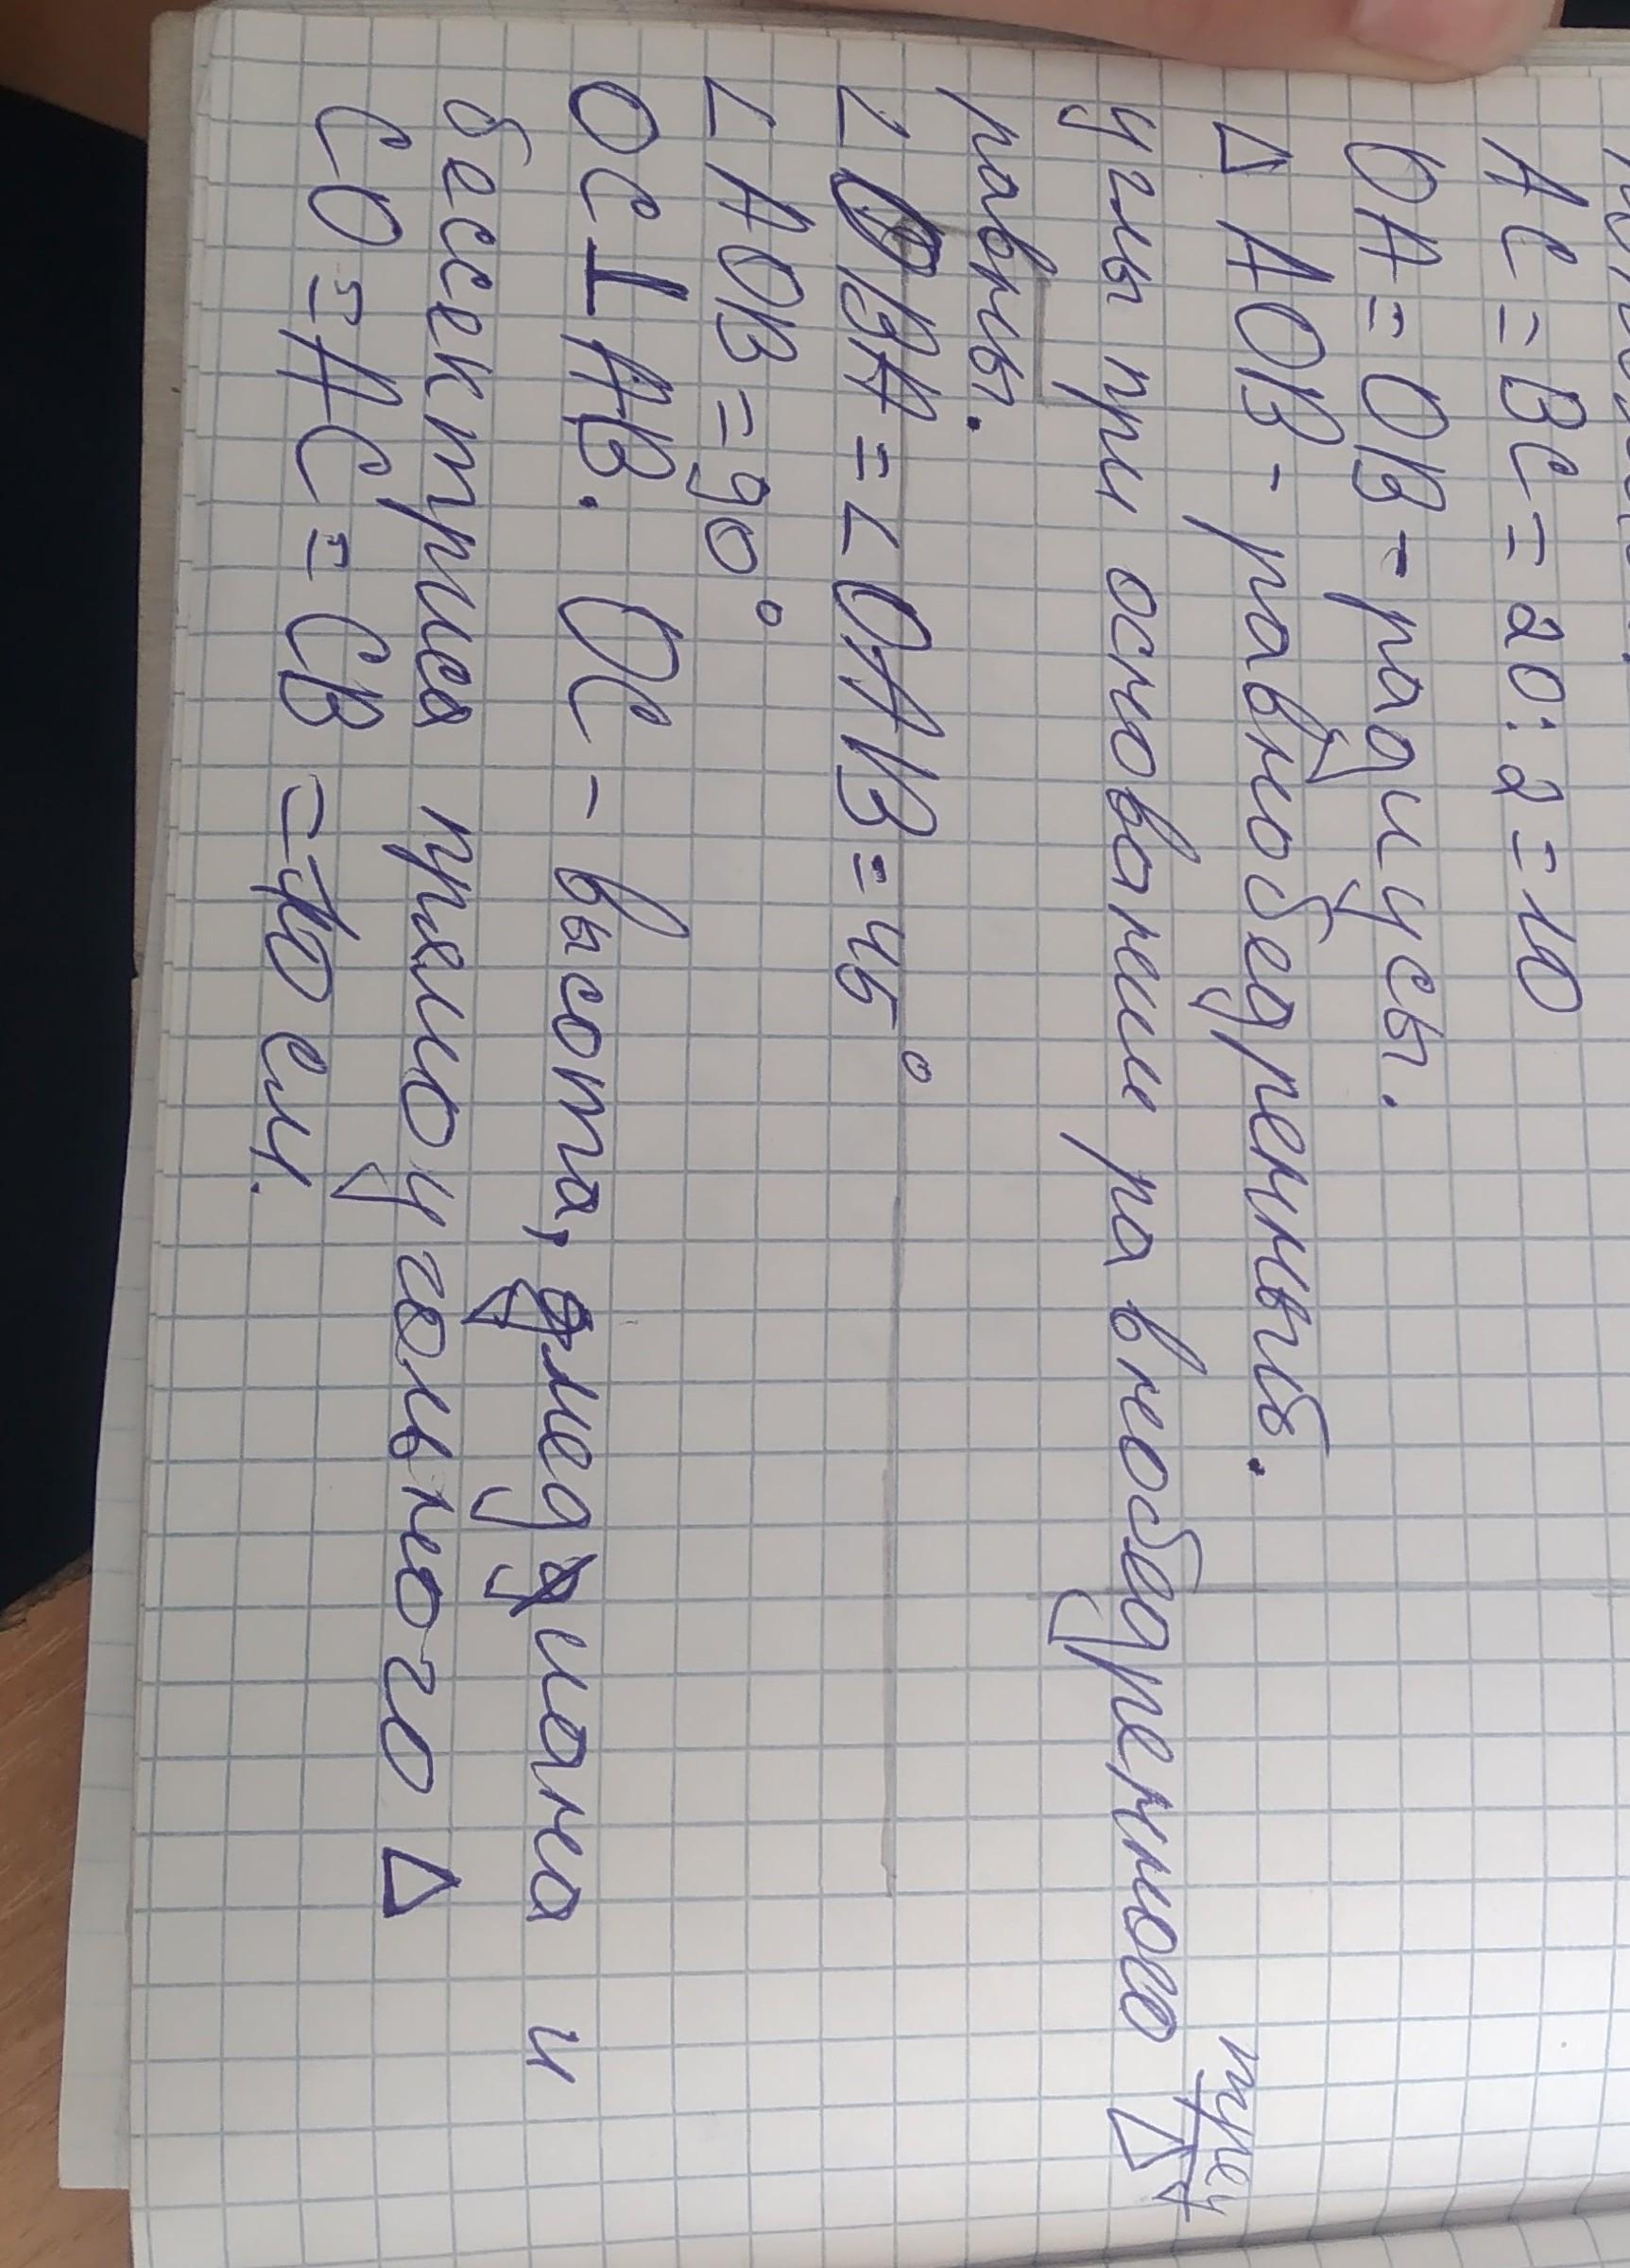 AC = BC = 20:2=10
OA = OB - радиусы.
Δ AOB - равнобедренный.
треу
углы при основании равнобедренного Δ
равны.
∠ OBA = ∠ OAB = 45°
∠ AOB = 90°
OC ⊥ AB. OC - высота, медиана и
бессектриса прямоугольного Δ
CO = AC = CB = 10 см.